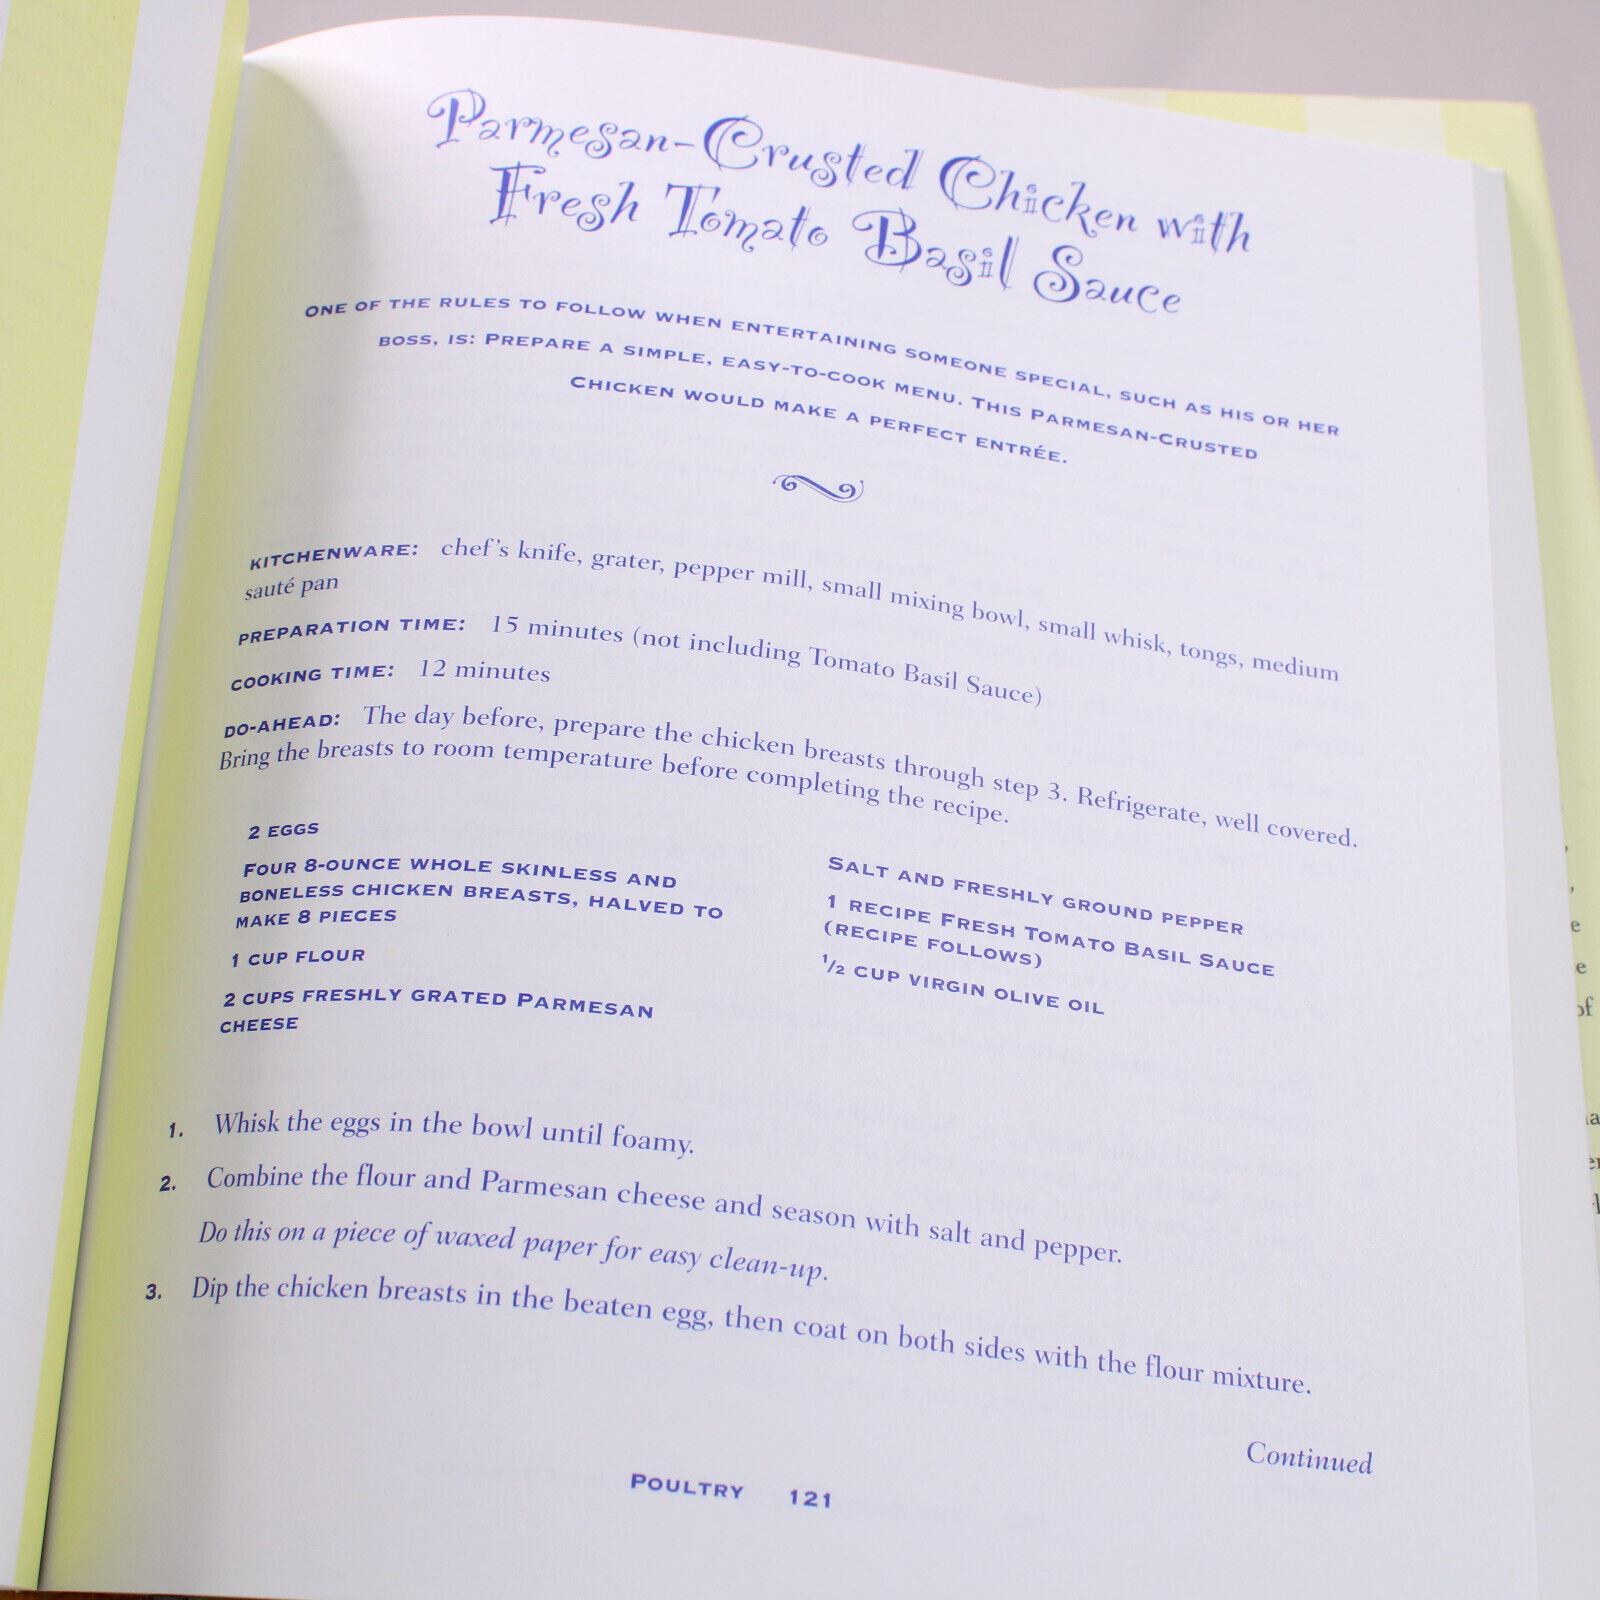 Parmesan-Crusted Chicken with
Fresh Tomato Basil Sauce
ONE OF THE RULES TO FOLLOW WHEN ENTERTAINING SOMEONE SPECIAL, SUCH AS HIS OR HER
BOSS, IS: PREPARE A SIMPLE, EASY-TO-COOK MENU. THIS PARMESAN-CRUSTED
CHICKEN WOULD MAKE A PERFECT ENTRÉE.
KITCHENWARE: chef's knife, grater, pepper mill, small mixing bowl, small whisk, tongs, medium
sauté pan
PREPARATION TIME: 15 minutes (not including Tomato Basil Sauce)
COOKING TIME: 12 minutes
DO-AHEAD: The day before, prepare the chicken breasts through step 3. Refrigerate, well covered.
Bring the breasts to room temperature before completing the recipe.
2 EGGS
FOUR 8-OUNCE WHOLE SKINLESS AND
BONELESS CHICKEN BREASTS, HALVED TO
MAKE 8 PIECES
1 CUP FLOUR
2 CUPS FRESHLY GRATED PARMESAN
CHEESE
SALT AND FRESHLY GROUND PEPPER
1 RECIPE FRESH TOMATO BASIL SAUCE
(RECIPE FOLLOWS)
1/2 CUP VIRGIN OLIVE OIL
1. Whisk the eggs in the bowl until foamy.
2. Combine the flour and Parmesan cheese and season with salt and pepper.
Do this on a piece of waxed paper for easy clean-up.
3. Dip the chicken breasts in the beaten egg, then coat on both sides with the flour mixture.
Continued
POULTRY 121